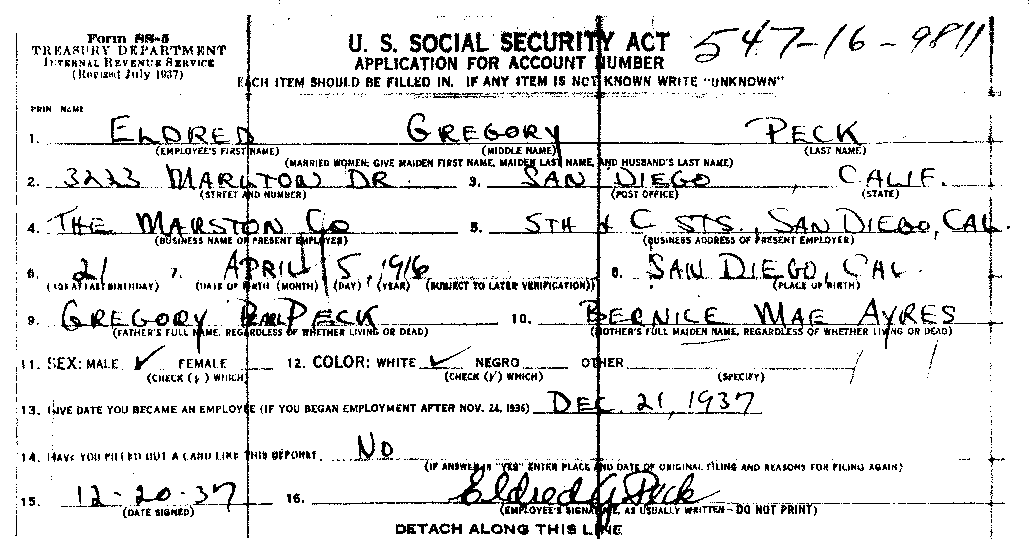 Form SS-5
TREASURY DEPARTMENT
INTERNAL REVENUE SERVICE
(Revised July 1937)
U. S. SOCIAL SECURITY ACT
APPLICATION FOR ACCOUNT NUMBER
547-16-9811
EACH ITEM SHOULD BE FILLED IN. IF ANY ITEM IS NOT KNOWN WRITE "UNKNOWN"
PRINT NAME
1. ELDRED GREGORY PECK
(EMPLOYEE'S FIRST NAME) (MIDDLE NAME) (LAST NAME)
(MARRIED WOMEN: GIVE MAIDEN FIRST NAME, MAIDEN LAST NAME, AND HUSBAND'S LAST NAME)
2. 3223 MARLTON DR. 3. SAN DIEGO, CALIF.
(STREET AND NUMBER) (POST OFFICE) (STATE)
4. THE MARSTON CO 5. 5TH & C STS., SAN DIEGO, CAL.
(BUSINESS NAME OF PRESENT EMPLOYER) (BUSINESS ADDRESS OF PRESENT EMPLOYER)
6. 21 7. APRIL 5, 1916 8. SAN DIEGO, CAL.
(AGE AT LAST BIRTHDAY) (DATE OF BIRTH (MONTH) (DAY) (YEAR) (SUBJECT TO LATER VERIFICATION)) (PLACE OF BIRTH)
9. GREGORY PECK 10. BERNICE MAE AYRES
(FATHER'S FULL NAME, REGARDLESS OF WHETHER LIVING OR DEAD) (MOTHER'S FULL MAIDEN NAME, REGARDLESS OF WHETHER LIVING OR DEAD)
11. SEX: MALE ✓ FEMALE 12. COLOR: WHITE ✓ NEGRO OTHER
(CHECK (✓) WHICH) (CHECK (✓) WHICH) (SPECIFY)
13. GIVE DATE YOU BECAME AN EMPLOYEE (IF YOU BEGAN EMPLOYMENT AFTER NOV. 24, 1936) DEC. 21, 1937
14. HAVE YOU FILLED OUT A CARD LIKE THIS BEFORE NO
(IF ANSWER IS "YES" ENTER PLACE AND DATE OF ORIGINAL FILING AND REASONS FOR FILING AGAIN)
15. 12-20-37 16. Eldred G. Peck
(DATE SIGNED) (EMPLOYEE'S SIGNATURE, AS USUALLY WRITTEN - DO NOT PRINT)
DETACH ALONG THIS LINE